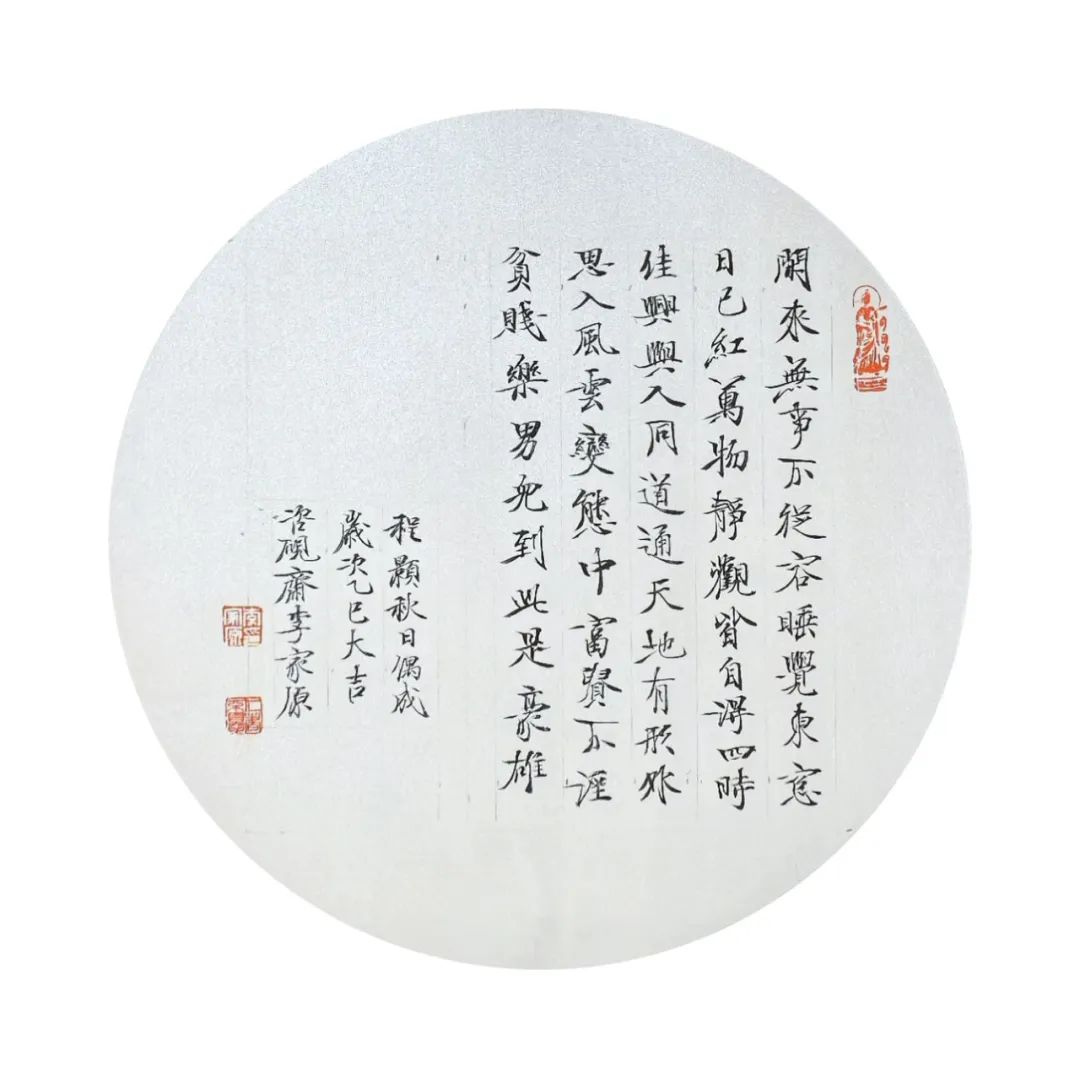 閑來無事不從容睡覺東窓
日已紅萬物靜觀皆自得四時
佳興與人同道通天地有形外
思入風雲變態中富貴不淫
貧賤樂男兒到此是豪雄
程顥秋日偶成
歲次乙巳大吉
硯齋李家原